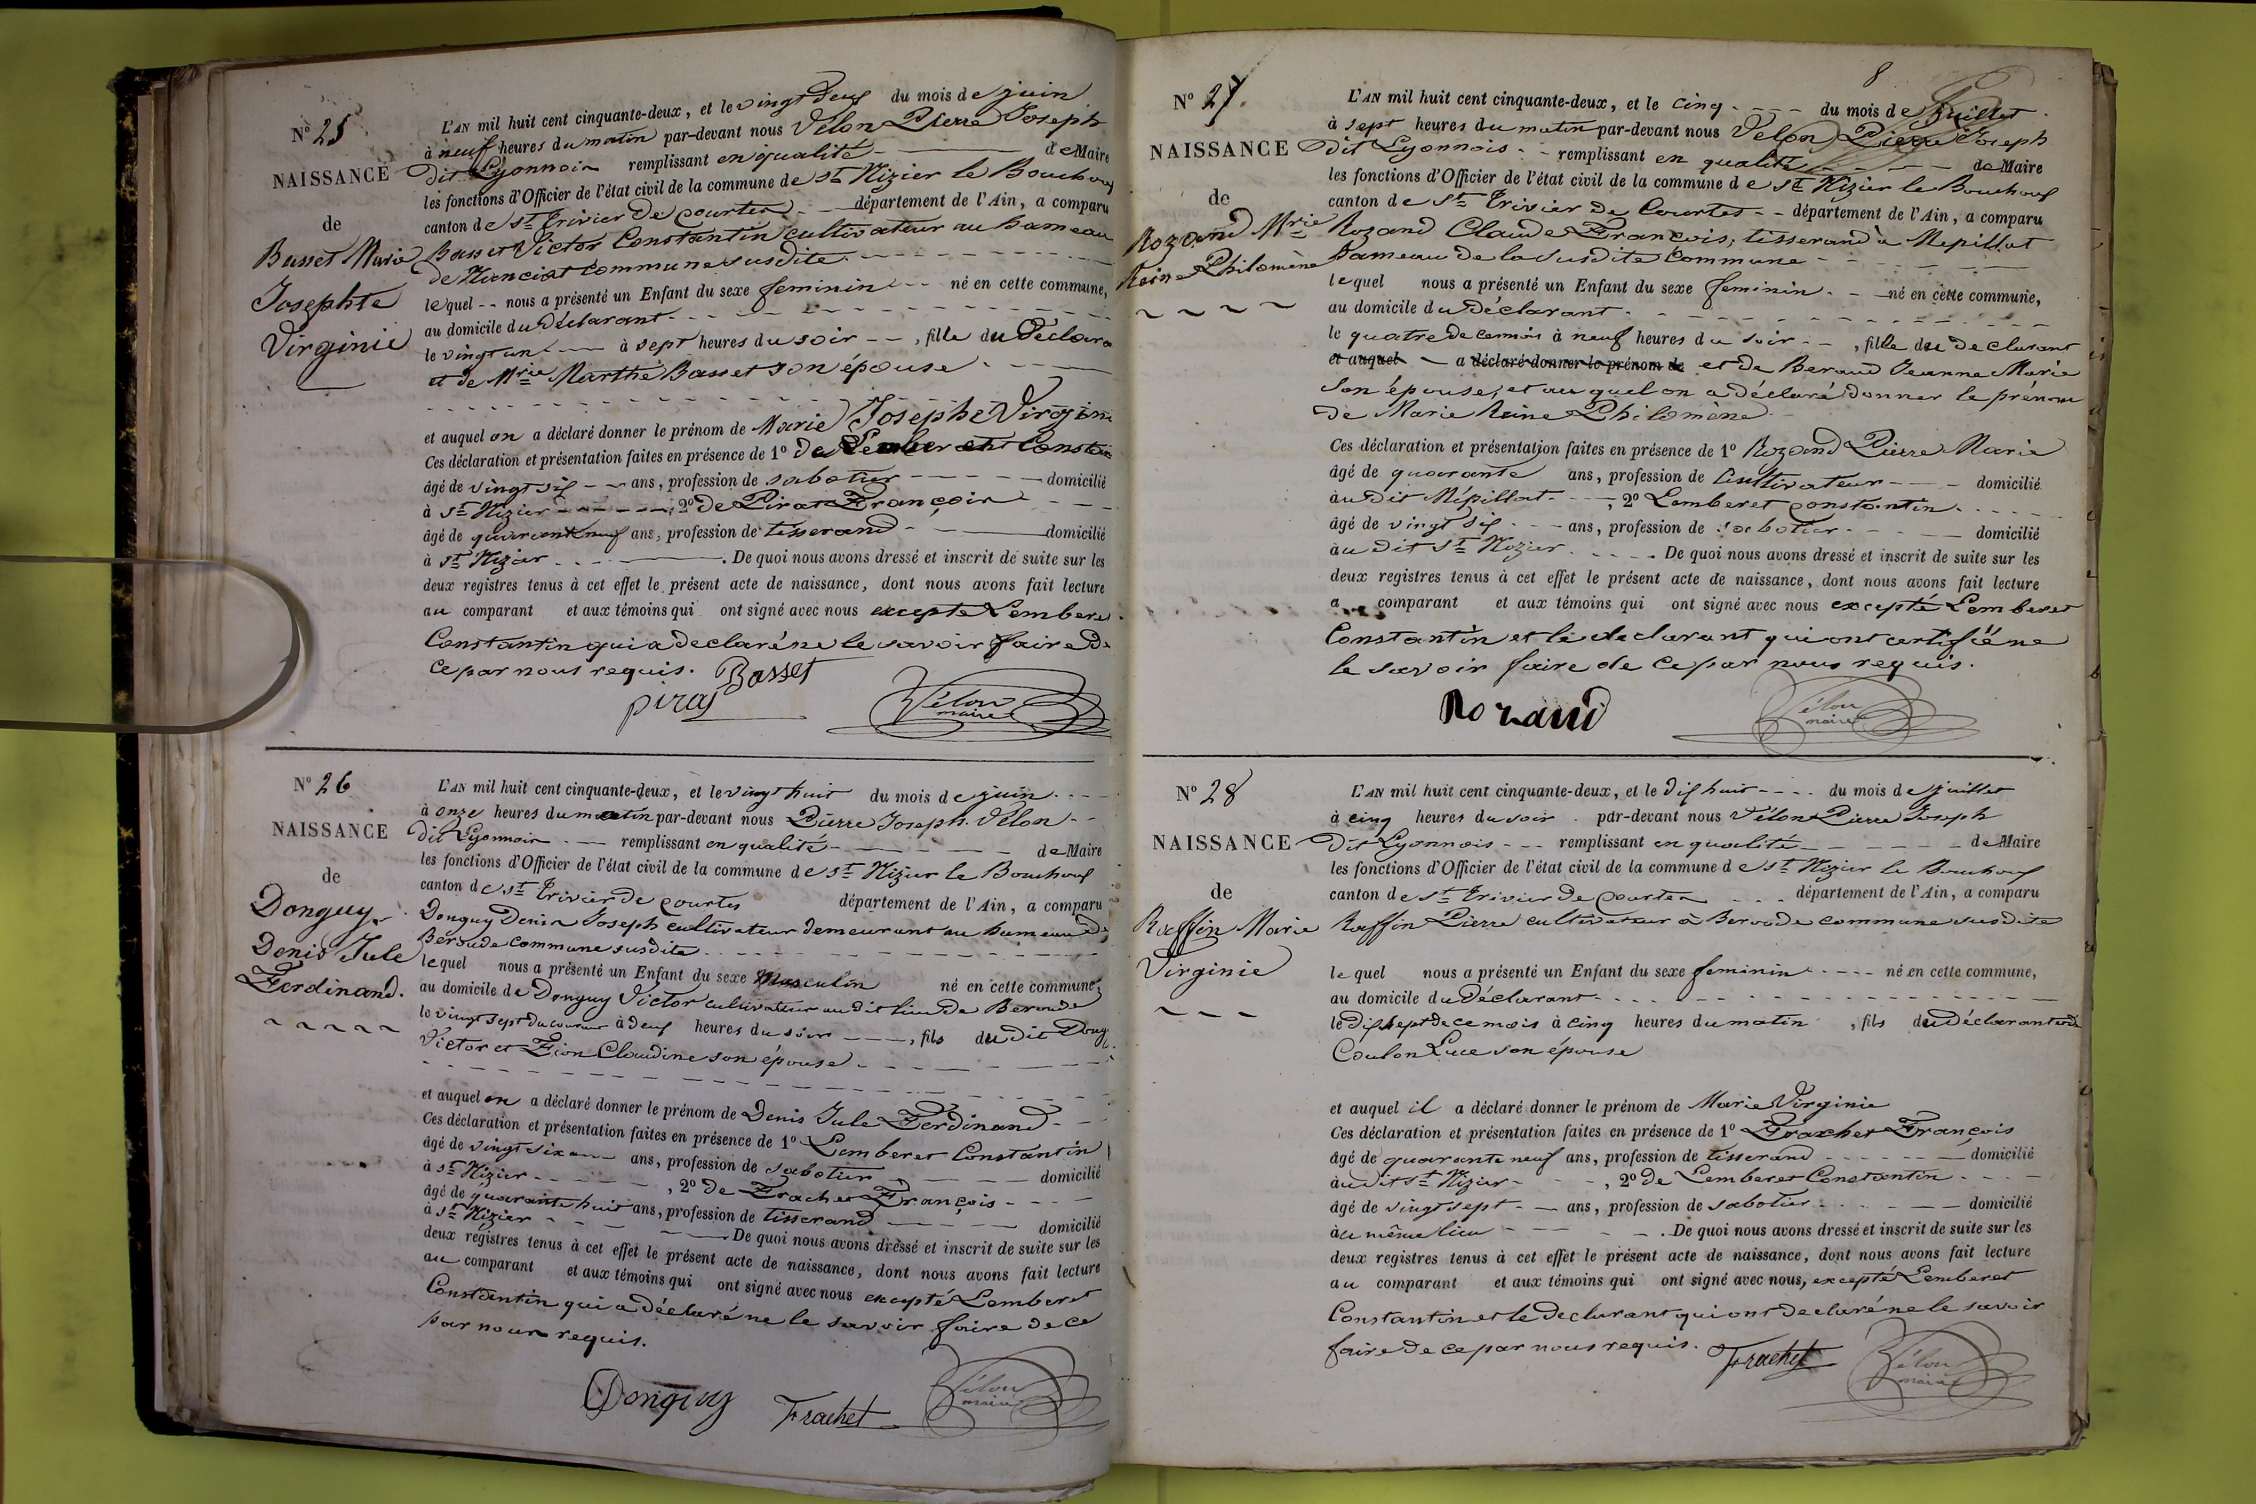 N° 25
NAISSANCE
de
Basset Marie
Josephte
Virginie
L'AN mil huit cent cinquante-deux, et le vingt deux du mois de juin
à neuf heures du matin par-devant nous Vélon Pierre Joseph
dit Lyonnois remplissant en qualité de Maire
les fonctions d'Officier de l'état civil de la commune de St Nizier le Bouchoux
canton de St Trivier de courtes département de l'Ain, a comparu
Basset Victor Constantin cultivateur au hameau
de commune susdite
lequel nous a présenté un Enfant du sexe feminin né en cette commune,
au domicile du déclarant
le vingt un à sept heures du soir, fille du Déclara
et de Mrie Marthe Basset son épouse
et auquel on a déclaré donner le prénom de Marie Josephe Virgini
Ces déclaration et présentation faites en présence de 1° de Lemberet Constan
âgé de vingt six ans, profession de sabotier domicilié
à St Nizier, 2° de Pirat François
âgé de quarante neuf ans, profession de tisserand domicilié
à St Nizier. De quoi nous avons dressé et inscrit de suite sur les
deux registres tenus à cet effet le présent acte de naissance, dont nous avons fait lecture
au comparant et aux témoins qui ont signé avec nous excepté Lemberet
Constantin qui a declaré ne le savoir faire de
ce par nous requis. Basset
piras Vélon
maire
N° 26
NAISSANCE
de
Donguy
Denis Jule
Ferdinand.
L'AN mil huit cent cinquante-deux, et le vingt huit du mois de juin
à onze heures du matin par-devant nous Pierre Joseph Vélon
dit Lyonnois remplissant en qualité de Maire
les fonctions d'Officier de l'état civil de la commune de St Nizier le Bouchoux
canton de St Trivier de courtes département de l'Ain, a comparu
Donguy Denis Joseph cultivateur demeurant au hameau de
Beroude commune susdite
lequel nous a présenté un Enfant du sexe masculin né en cette commune,
au domicile de Donguy Victor cultivateur au dit lieu de Beroude
le vingt sept du courant à deux heures du soir, fils du dit Dong
Victor et Fion Claudine son épouse
et auquel on a déclaré donner le prénom de Denis Jule Ferdinand
Ces déclaration et présentation faites en présence de 1° Lemberet Constantin
âgé de vingt six ans, profession de sabotier domicilié
à St Nizier, 2° de Frachet François
âgé de quarante huit ans, profession de tisserand domicilié
à St Nizier De quoi nous avons dressé et inscrit de suite sur les
deux registres tenus à cet effet le présent acte de naissance, dont nous avons fait lecture
au comparant et aux témoins qui ont signé avec nous excepté Lemberet
Constantin qui a déclaré ne le savoir faire de ce
par nous requis.
Donguy Frachet Vélon
maire
8
N° 27.
NAISSANCE
de
Rozand Mrie
Reine Philomène
L'AN mil huit cent cinquante-deux, et le cinq du mois de Juillet
à sept heures du matin par-devant nous Vélon Pierre Joseph
dit Lyonnois remplissant en qualité de Maire
les fonctions d'Officier de l'état civil de la commune de St Nizier le Bouchoux
canton de St Trivier de Courtes département de l'Ain, a comparu
Rozand Claude François, tisserand à Mepillat
hameau de la susdite commune
lequel nous a présenté un Enfant du sexe feminin né en cette commune,
au domicile du déclarant
le quatre de ce mois à neuf heures du soir, fille du declarant
et auquel a déclaré donner le prénom de et de Beraud Jeanne Marie
son épouse, et auquel on a déclaré donner le prénom
de Marie Reine Philomène
Ces déclaration et présentation faites en présence de 1° Rozand Pierre Marie
âgé de quarante ans, profession de Cultivateur domicilié
au dit Mépillat, 2° Lemberet constantin
âgé de vingt six ans, profession de sabotier domicilié
au dit St Nizier. De quoi nous avons dressé et inscrit de suite sur les
deux registres tenus à cet effet le présent acte de naissance, dont nous avons fait lecture
a comparant et aux témoins qui ont signé avec nous excepté Lemberet
Constantin et le declarant qui ont certifié ne
le savoir faire de ce par nous requis.
Rozand Vélon
maire
N° 28
NAISSANCE
de
Raffin Marie
Virginie
L'AN mil huit cent cinquante-deux, et le dix huit du mois de juillet
à cinq heures du soir par-devant nous Vélon Pierre Joseph
dit Lyonnois remplissant en qualité de Maire
les fonctions d'Officier de l'état civil de la commune de St Nizier le Bouchoux
canton de St Trivier de courtes département de l'Ain, a comparu
Raffin Pierre cultivateur à Beroude commune susdite
lequel nous a présenté un Enfant du sexe feminin né en cette commune,
au domicile du Déclarant
le dix sept de ce mois à cinq heures du matin, fils du Déclarant et de
Coulon Luce son épouse
et auquel il a déclaré donner le prénom de Marie Virginie
Ces déclaration et présentation faites en présence de 1° Frachet François
âgé de quarante neuf ans, profession de tisserand domicilié
au dit St Nizier, 2° de Lemberet Constantin
âgé de vingt sept ans, profession de sabotier domicilié
au même lieu. De quoi nous avons dressé et inscrit de suite sur les
deux registres tenus à cet effet le présent acte de naissance, dont nous avons fait lecture
au comparant et aux témoins qui ont signé avec nous, excepté Lemberet
Constantin et le declarant qui ont declaré ne le savoir
faire de ce par nous requis. Frachet Vélon
maire